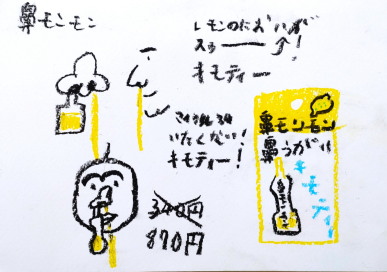 鼻モンモン
レモンのにおいが
スゥー—ッ!
キモティー
いたくない!
キモティー!
340円
870円
鼻モンモン
鼻うがい
キモティー